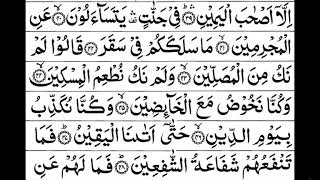 اِلَّاۤ اَصْحٰبَ الْيَمِيْنِ ۝٣٩ فِيْ جَنّٰتٍ ۛ يَتَسَآءَلُوْنَ ۝٤٠
الْمُجْرِمِيْنَ ۝٤١ مَا سَلَكَكُمْ فِيْ سَقَرَ ۝٤٢ قَالُوْا لَمْ
نَكُ مِنَ الْمُصَلِّيْنَ ۝٤٣ وَلَمْ نَكُ نُطْعِمُ الْمِسْكِيْنَ ۝٤٤
وَكُنَّا نَخُوْضُ مَعَ الْخَآئِضِيْنَ ۝٤٥ وَكُنَّا نُكَذِّبُ
بِيَوْمِ الدِّيْنِ ۝٤٦ حَتّٰۤى اَتٰىنَا الْيَقِيْنُ ۝٤٧ فَمَا
تَنْفَعُهُمْ شَفَاعَةُ الشّٰفِعِيْنَ ۝٤٨ فَمَا لَهُمْ عَنِ